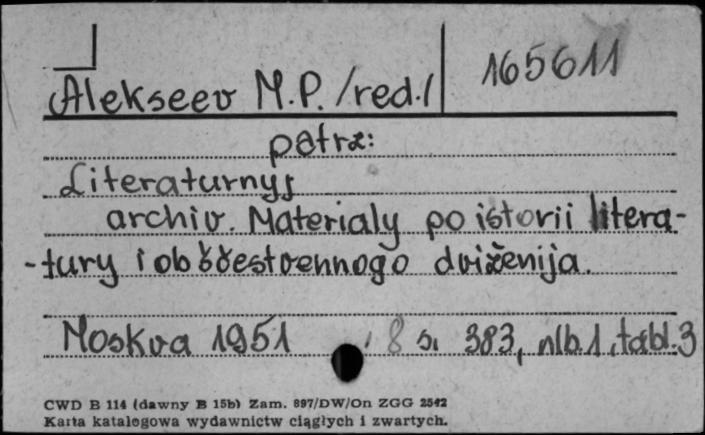 Alekseev M.P. /red./ 165611
patrz:
Literaturnyj
archiv. Materialy po istorii litera-
-tury i obščestvennogo dviženija.
Moskva 1951 8 s. 383, nlb.1, tabl.3
CWD B 114 (dawny B 15b) Zam. 897/DW/On ZGG 2542
Karta katalogowa wydawnictw ciągłych i zwartych.